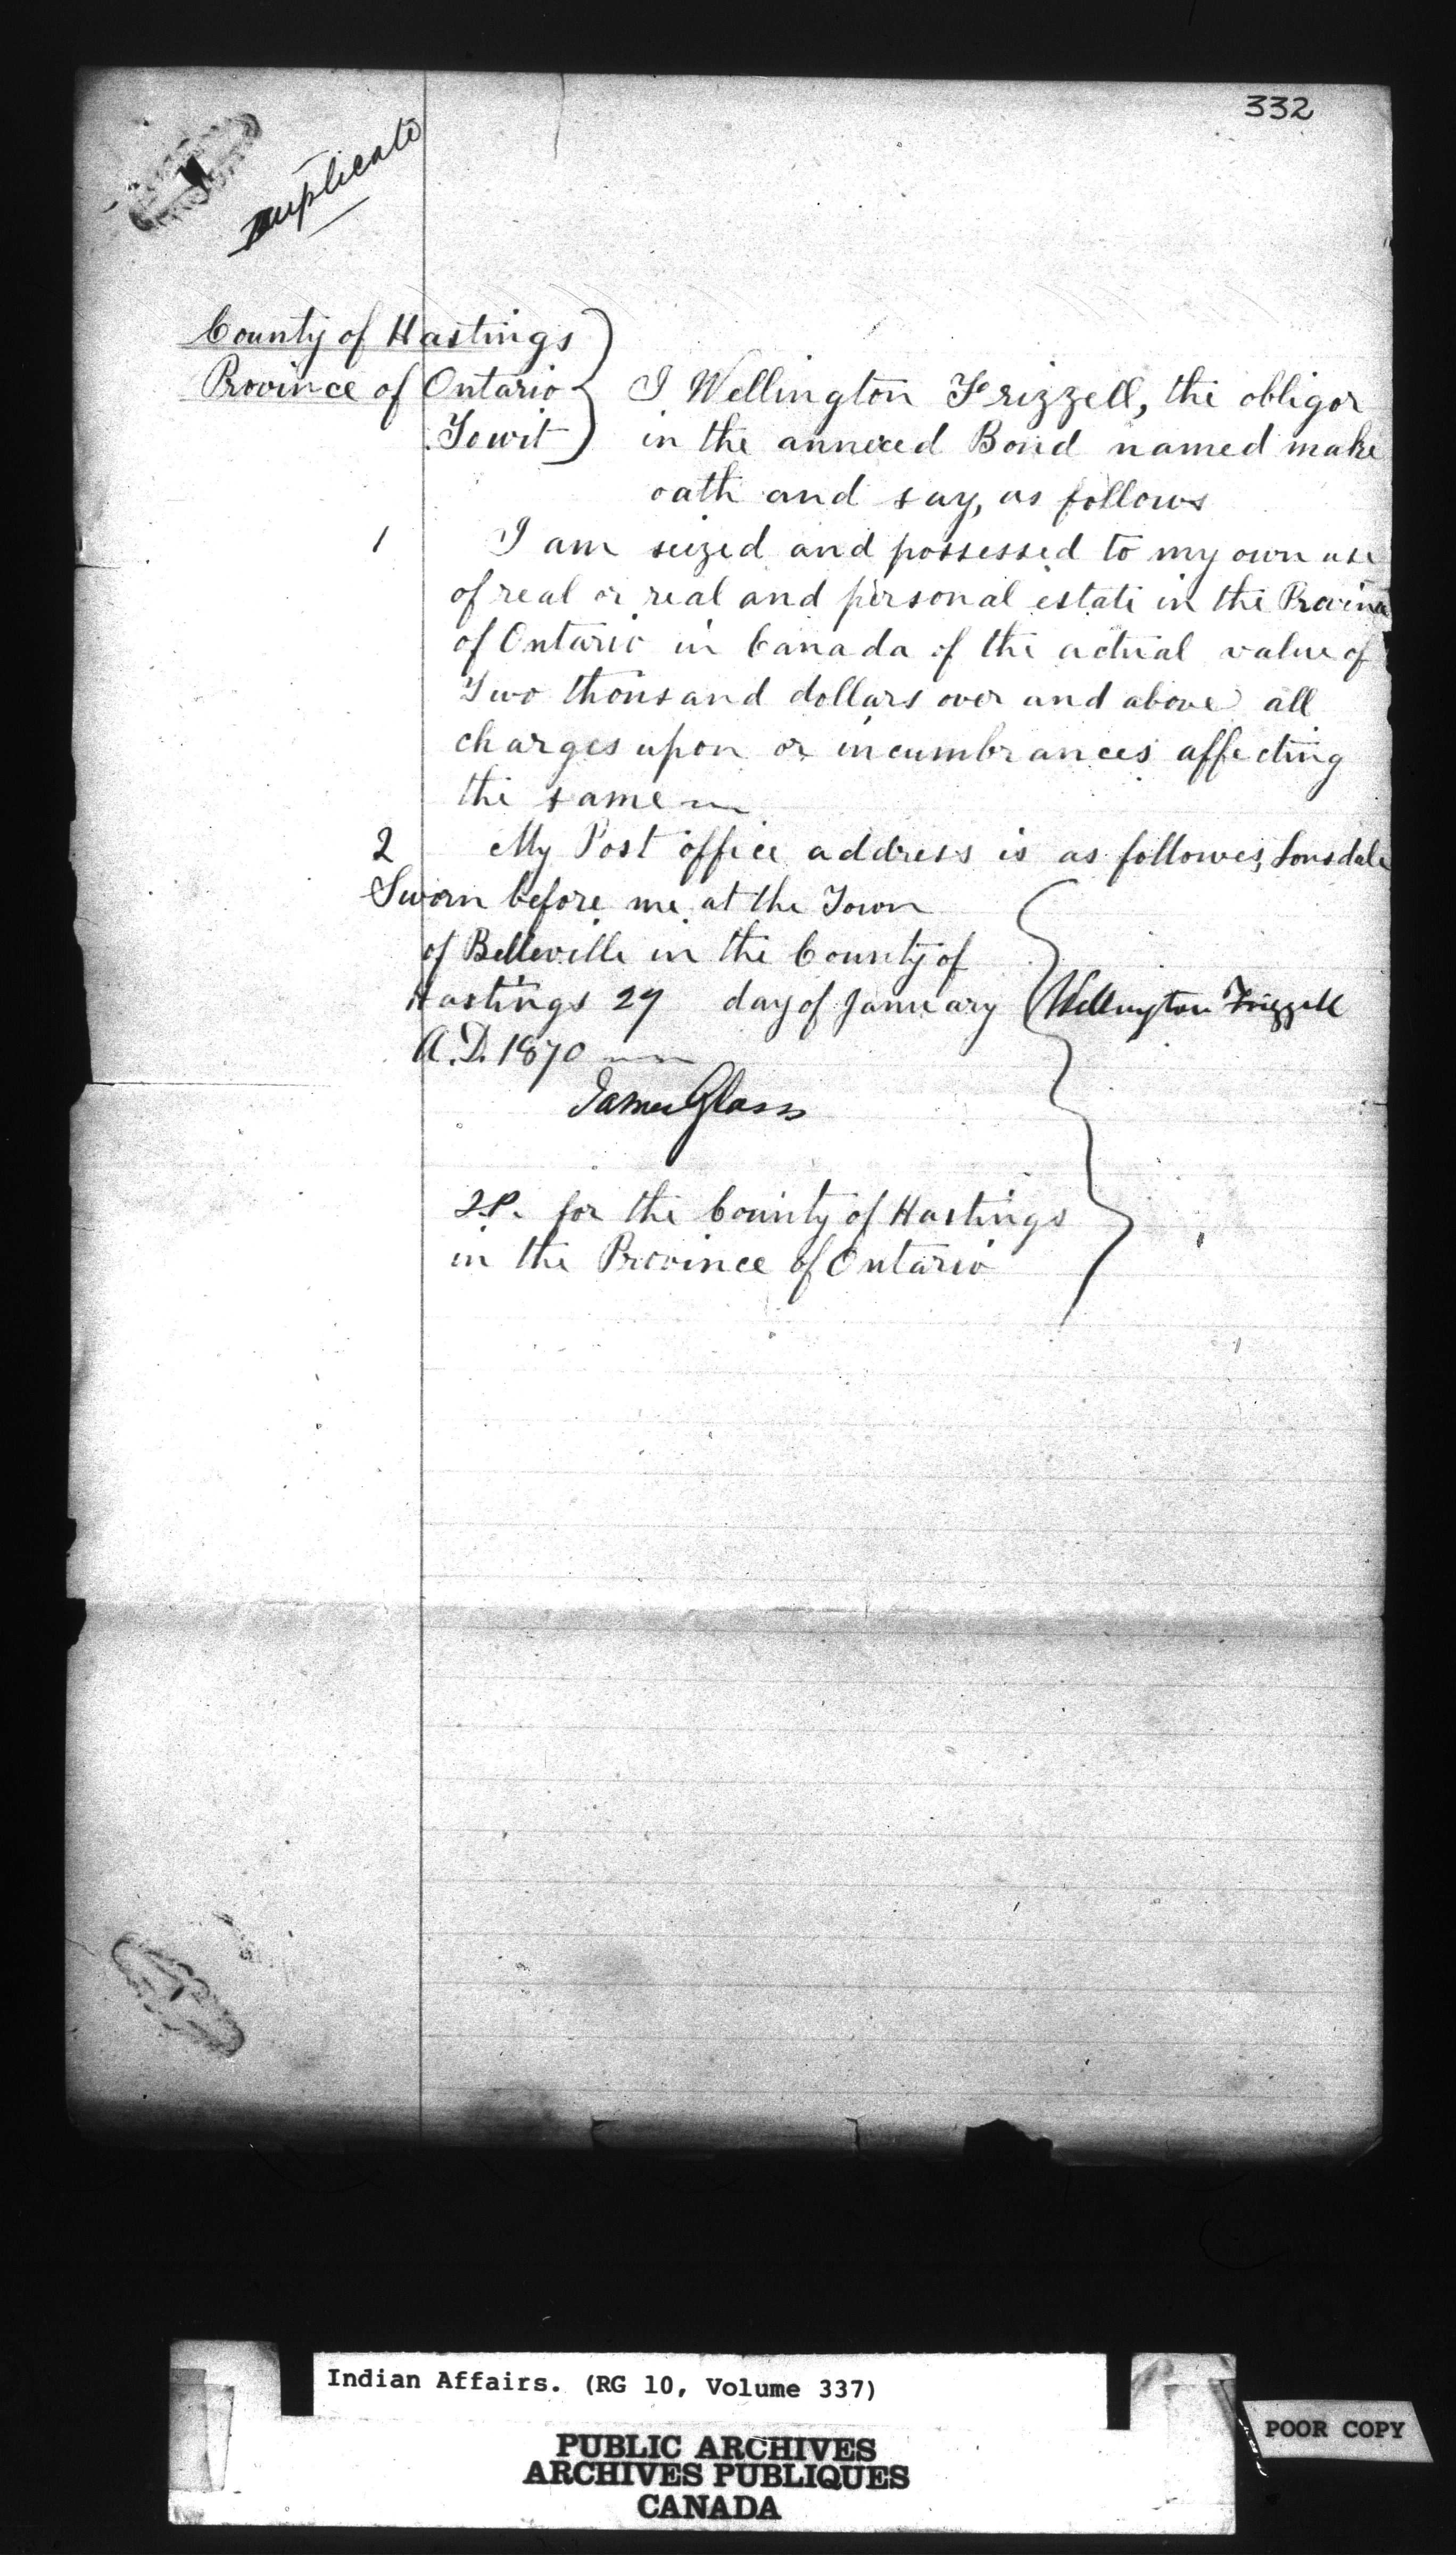 332
Duplicate
County of Hastings
Province of Ontario
Towit
I Wellington Frizzell, the obligor
in the annexed Bond named make
oath and say, as follows
1 I am seized and possessed to my own use
of real or real and personal estate in the Province
of Ontario in Canada of the actual value of
Two thousand dollars over and above all
charges upon or incumbrances affecting
the same
2 My Post office address is as followes, Lonsdale
Sworn before me at the Town
of Belleville in the County of
Hastings 29 day of January
A.D. 1870
Wellington Frizzell
James Glass
J.P. for the County of Hastings
in the Province of Ontario
Indian Affairs. (RG 10, Volume 337)
PUBLIC ARCHIVES
ARCHIVES PUBLIQUES
CANADA
POOR COPY